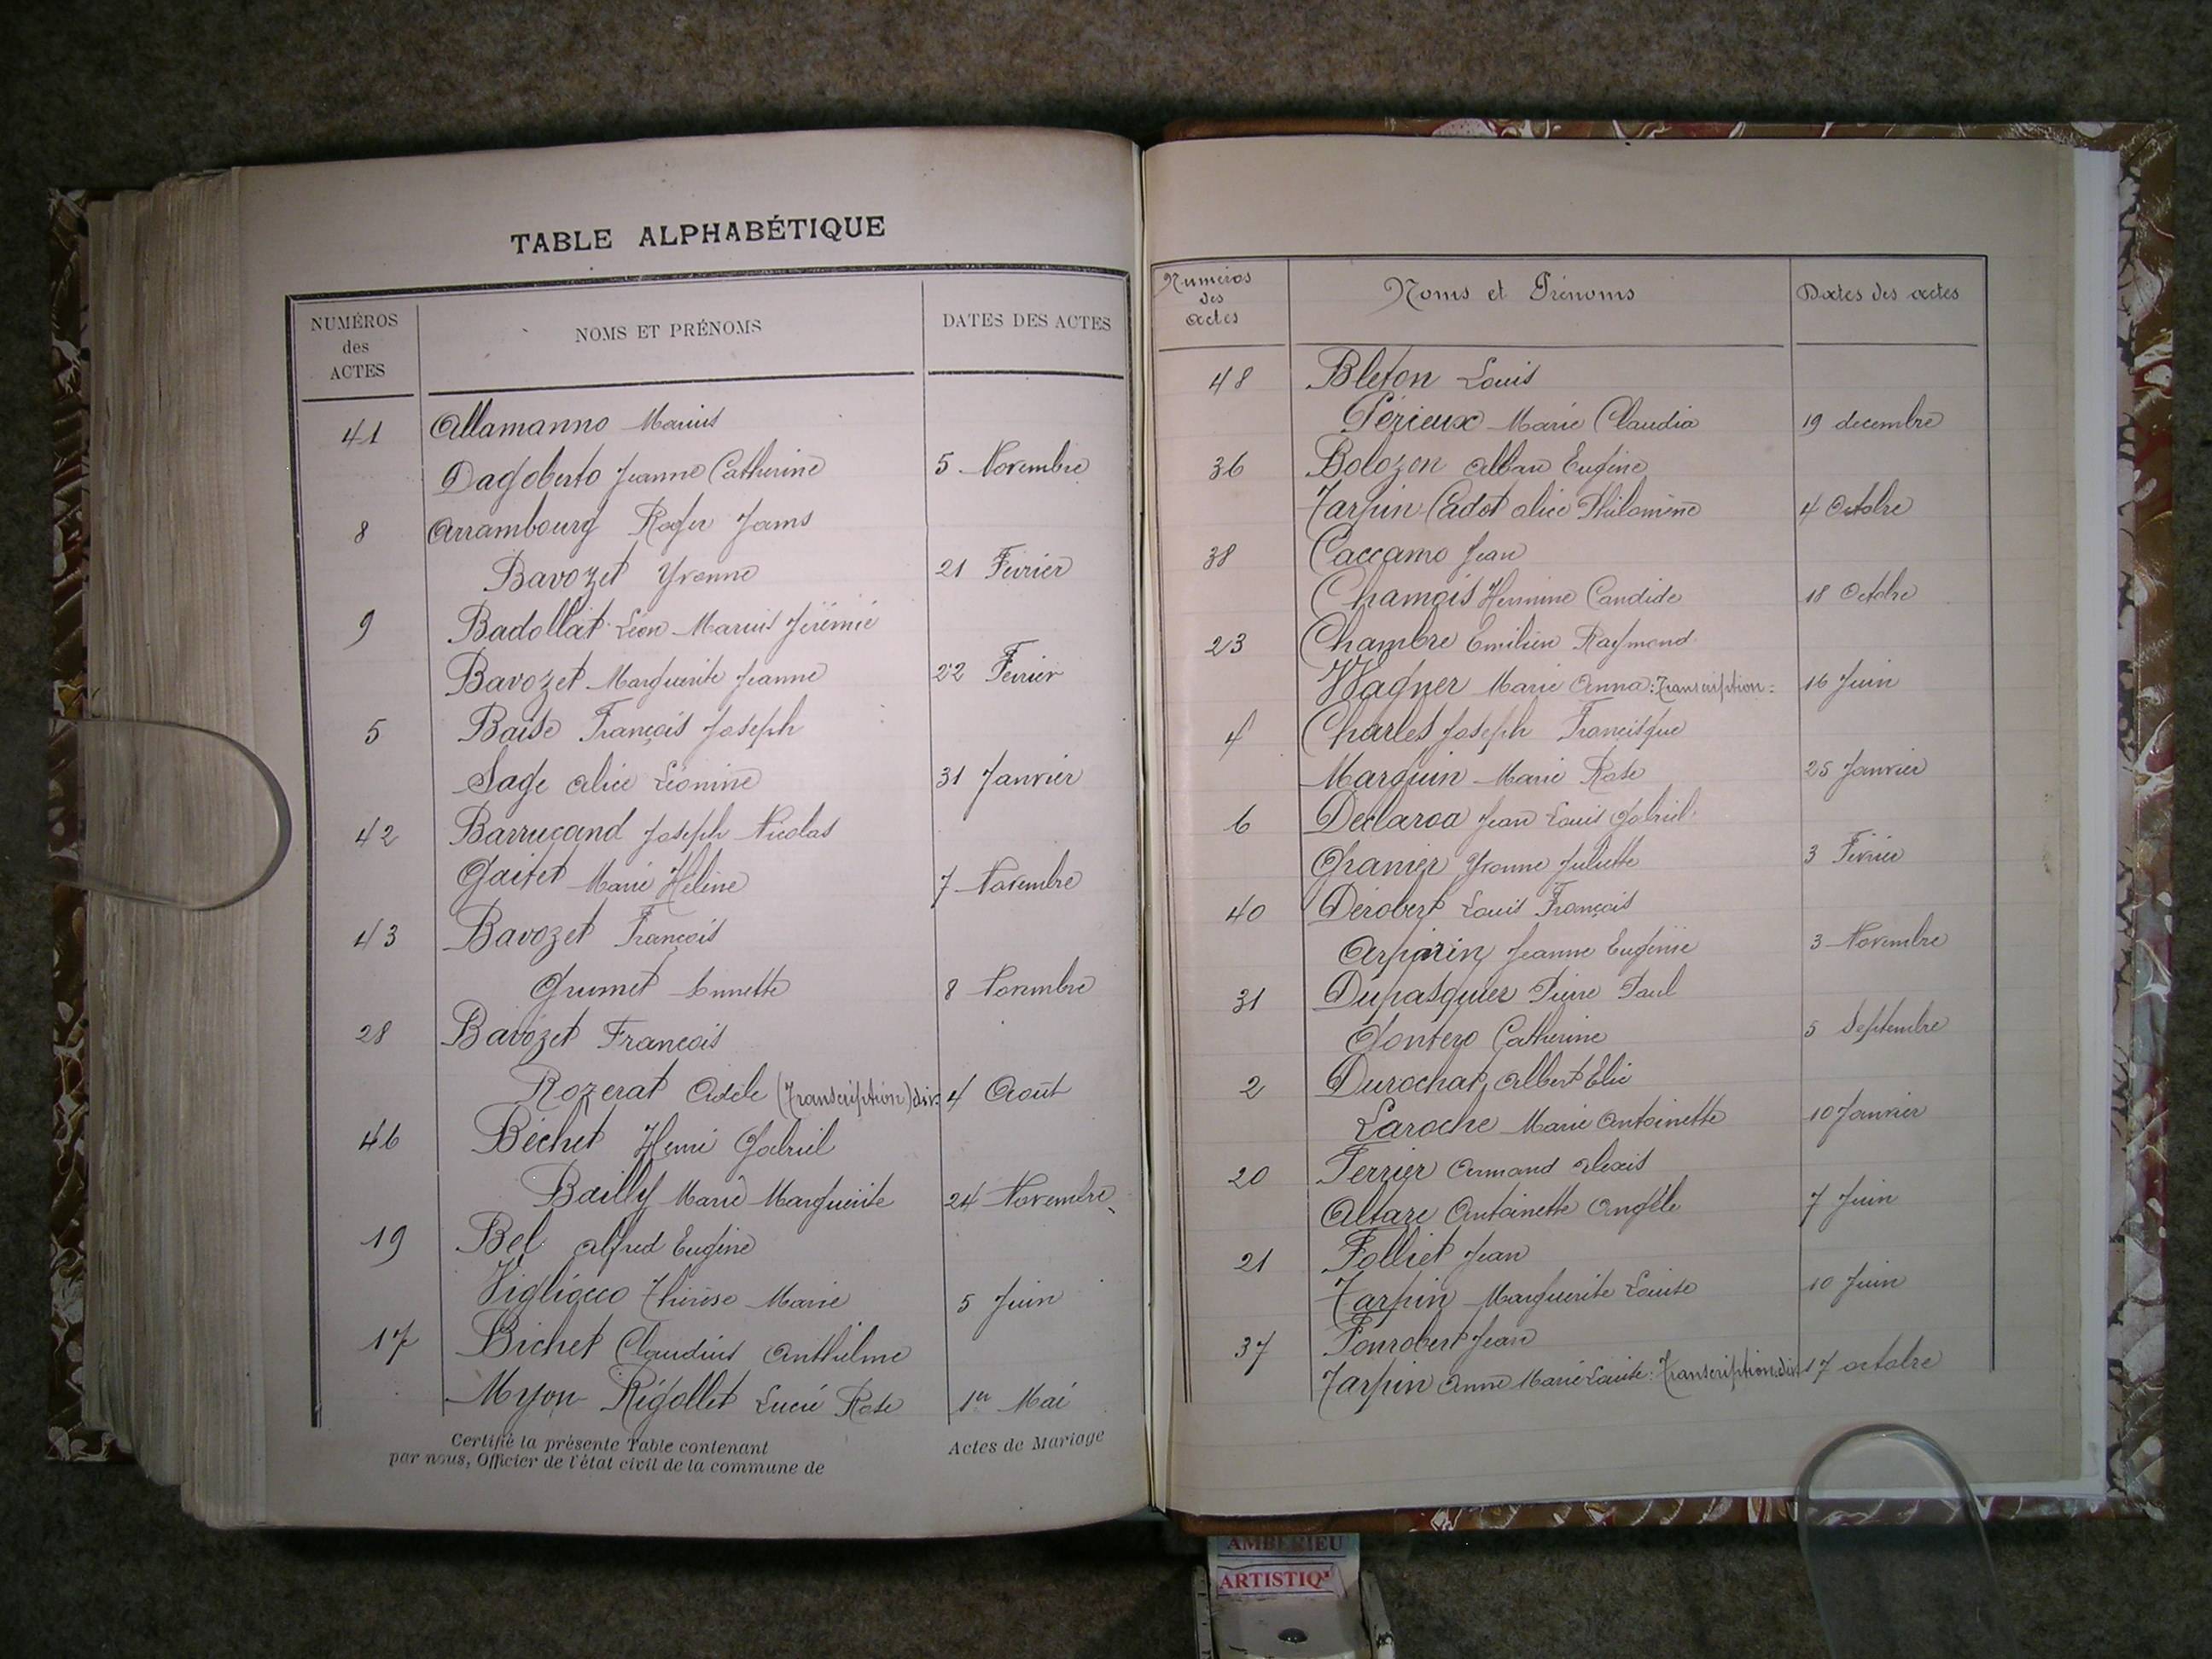 TABLE ALPHABÉTIQUE
NUMÉROS des ACTES NOMS ET PRÉNOMS DATES DES ACTES
41 Allamanno Marius
Dagoberto Jeanne Catherine 5 Novembre
8 Arrambourg Roger Jams
Bavozet Yvonne 21 Février
9 Badollat Léon Marius Jérémie
Bavozet Marguerite Jeanne 22 Février
5 Baise François Joseph
Sage Alice Léonine 31 Janvier
42 Barrucand Joseph Nicolas
Gaitet Marie Hélène 7 Novembre
43 Bavozet François
Grumet Annette 8 Novembre
28 Bavozet François
Rozerat Adèle (Transcription) div: 4 Août
46 Béchet Henri Gabriel
Bailly Marie Marguerite 24 Novembre
19 Bel Alfred Eugène
Vigliocco Thérèse Marie 5 Juin
17 Bichet Claudius Anthelme
Myon Rigollet Lucie Rose 1er Mai
Certifié la présente Table contenant Actes de Mariage
par nous, Officier de l'état civil de la commune de
Numéros des actes Noms et Prénoms Dates des actes
48 Bleton Louis
Périeux Marie Claudia 19 decembre
36 Bolozon Alban Eugène
Tarpin-Cadot Alice Philomène 4 Octobre
38 Caccamo Jean
Chamois Hermine Candide 18 Octobre
23 Chambre Emilien Raymond
Wagner Marie Anna: Transcription: 16 Juin
4 Charles Joseph Francisque
Marquin Marie Rose 25 Janvier
6 Declaroa Jean Louis Gabriel
Granier Yvonne Juliette 3 Février
40 Dérobert Louis François
Arparin Jeanne Eugénie 3 Novembre
31 Dupasquier Pierre Paul
Gontero Catherine 5 Septembre
2 Durochat Albert Elie
Laroche Marie Antoinette 10 Janvier
20 Ferrier Armand Alexis
Altare Antoinette Angèle 7 Juin
21 Folliet Jean
Tarpin Marguerite Louise 10 Juin
37 Fonrobert Jean
Tarpin Anne Marie Louise: Transcription div: 17 octobre
AMBERIEU
ARTISTIQ